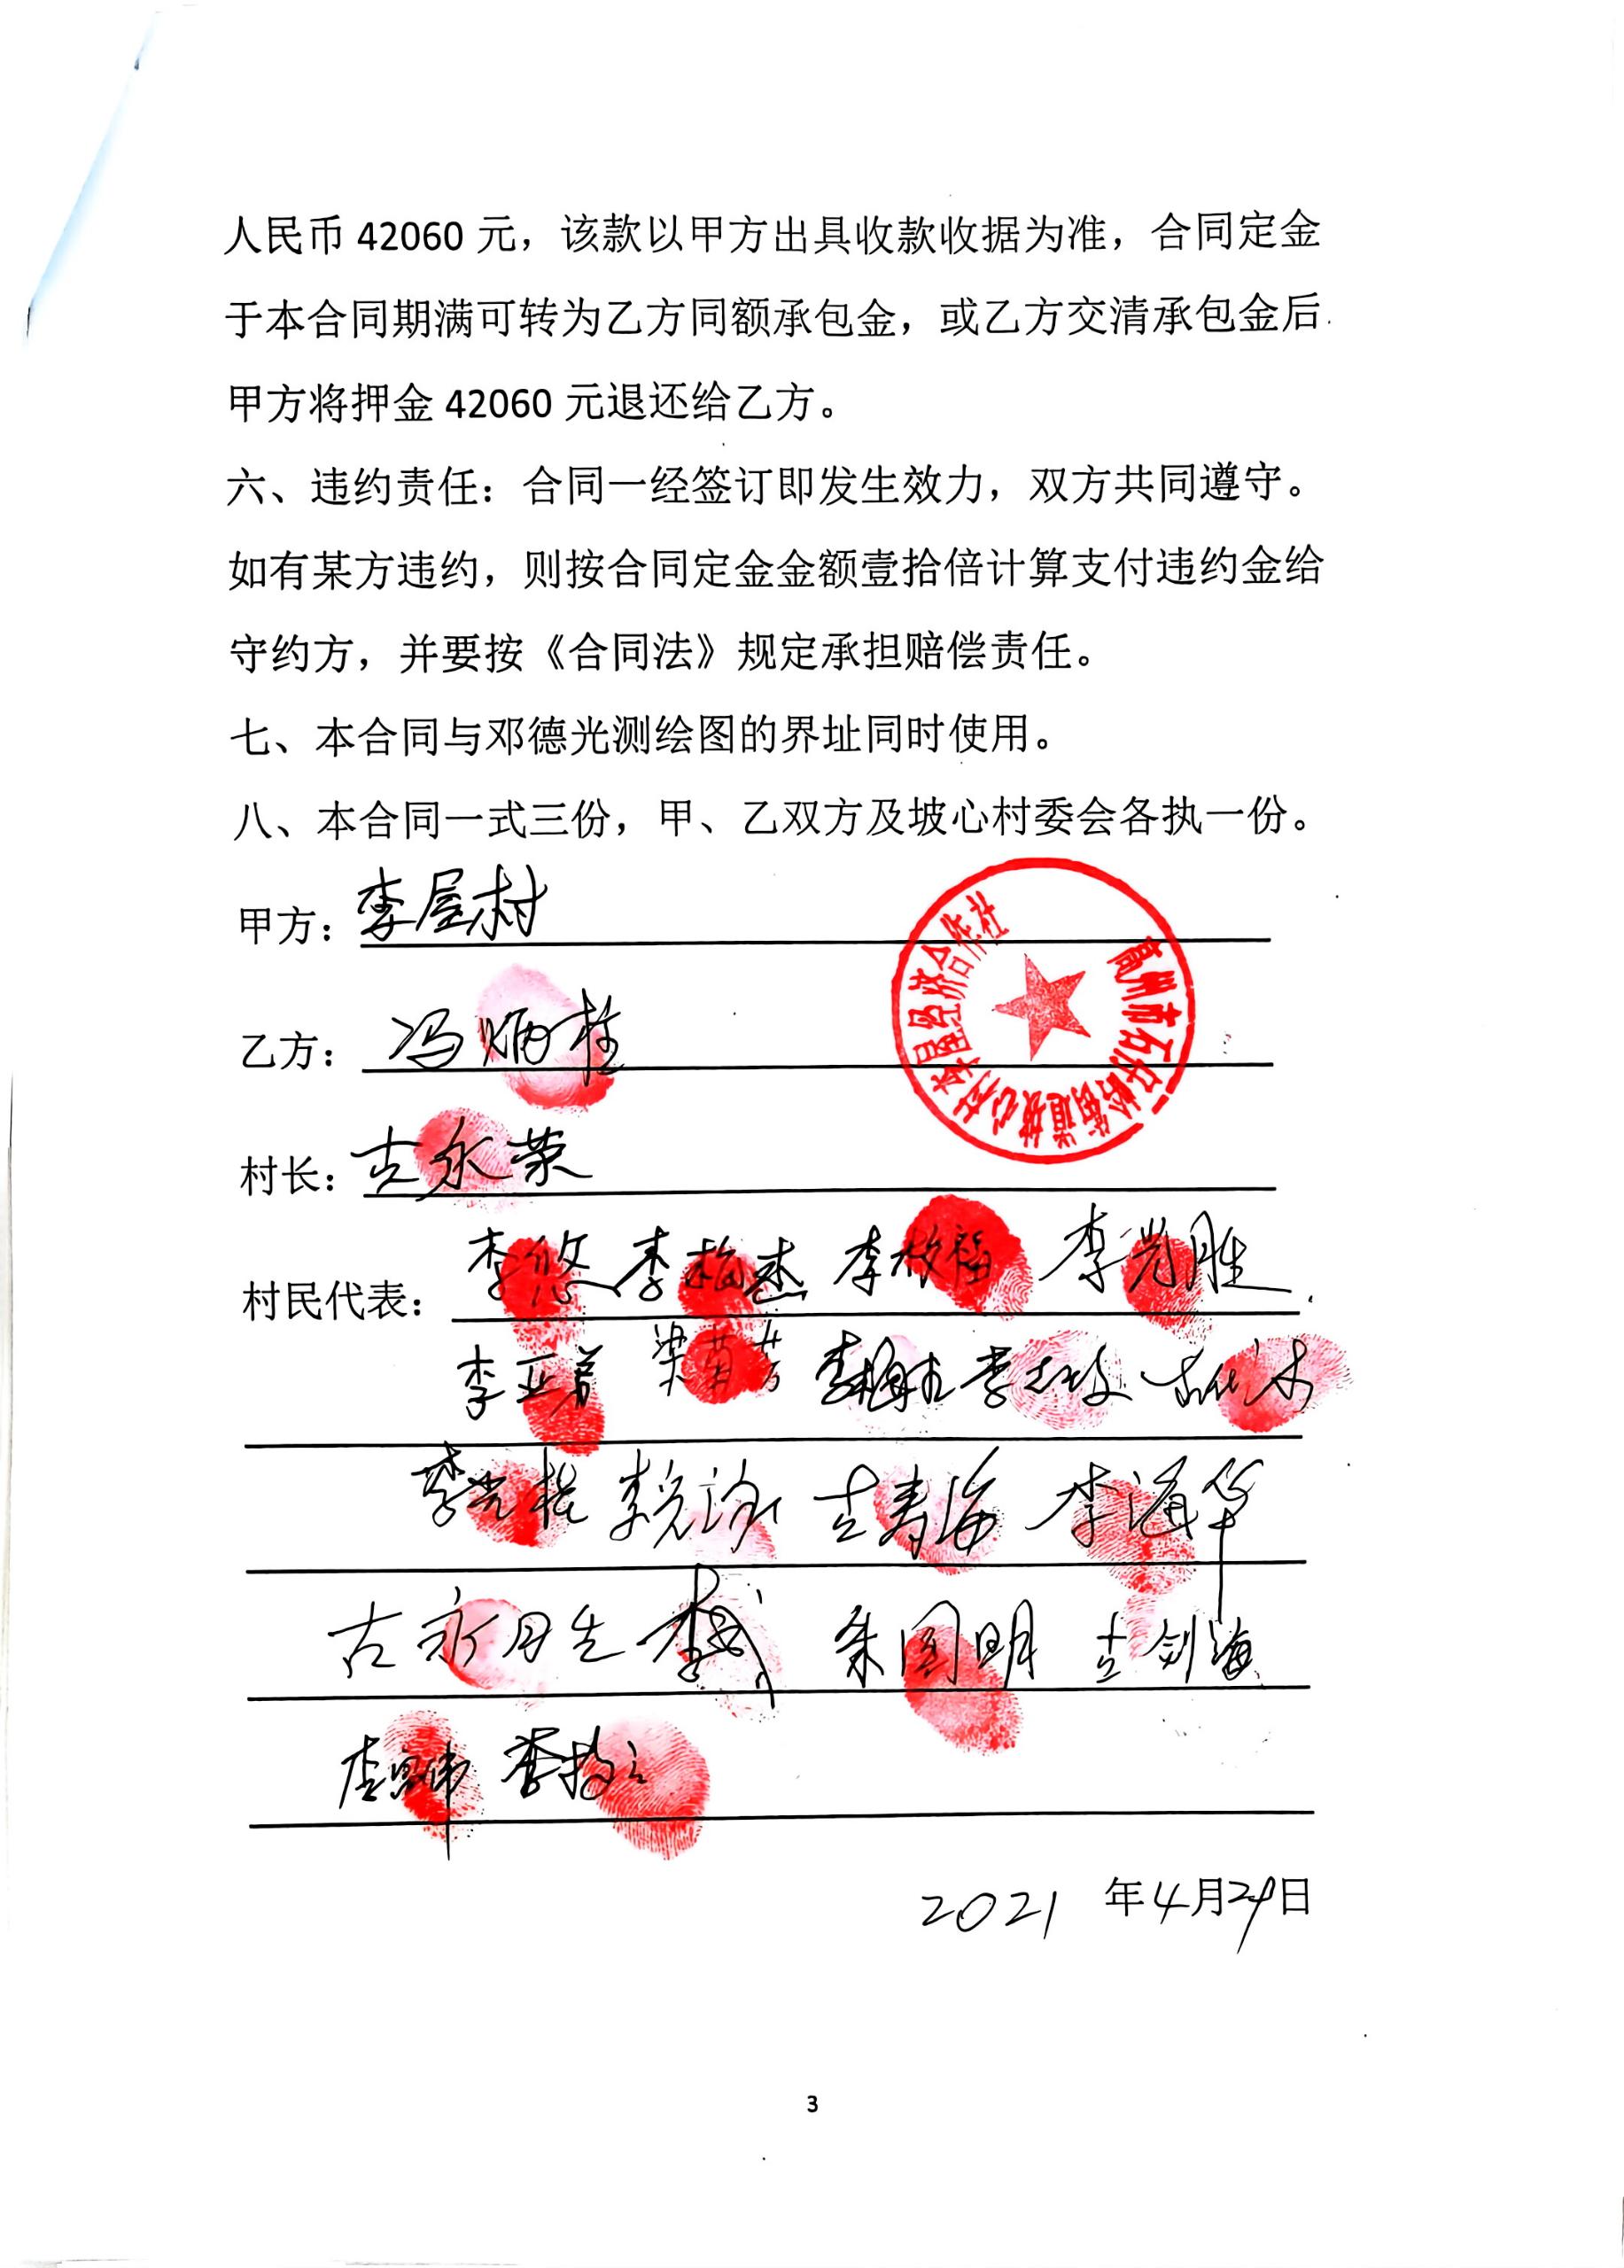 人民币 42060 元，该款以甲方出具收款收据为准，合同定金
于本合同期满可转为乙方同额承包金，或乙方交清承包金后
甲方将押金 42060 元退还给乙方。
六、违约责任：合同一经签订即发生效力，双方共同遵守。
如有某方违约，则按合同定金金额壹拾倍计算支付违约金给
守约方，并要按《合同法》规定承担赔偿责任。
七、本合同与邓德光测绘图的界址同时使用。
八、本合同一式三份，甲、乙双方及坡心村委会各执一份。
甲方：李屋村
高州市石仔岭街道坡心村李屋经济合作社
乙方：冯炳柱
村长：古永荣
村民代表：李悠 李 杰 李 福 李光胜
李亚 梁菊芳 李 李志
李光 李 古寿海 李海华
古 生 李 朱国明 古剑海
李 伟 李
2021 年 4 月 29 日
3